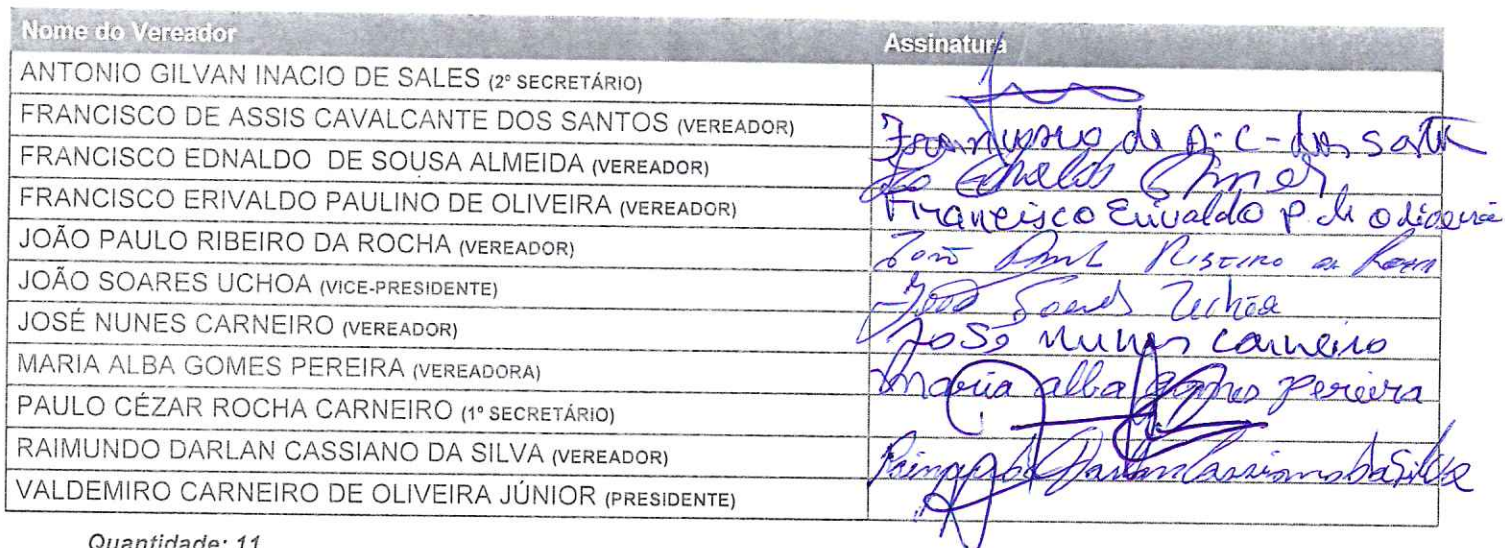 Nome do Vereador Assinatura
ANTONIO GILVAN INACIO DE SALES (2º SECRETÁRIO)
FRANCISCO DE ASSIS CAVALCANTE DOS SANTOS (VEREADOR) Francisco de A. C. dos Santos
FRANCISCO EDNALDO DE SOUSA ALMEIDA (VEREADOR) Ednaldo
FRANCISCO ERIVALDO PAULINO DE OLIVEIRA (VEREADOR) Francisco Erivaldo P. de oliveira
JOÃO PAULO RIBEIRO DA ROCHA (VEREADOR) João Paul Ribeiro da Rocha
JOÃO SOARES UCHOA (VICE-PRESIDENTE) João Soares Uchôa
JOSÉ NUNES CARNEIRO (VEREADOR) José Nunes carneiro
MARIA ALBA GOMES PEREIRA (VEREADORA) Maria alba gomes Pereira
PAULO CÉZAR ROCHA CARNEIRO (1º SECRETÁRIO)
RAIMUNDO DARLAN CASSIANO DA SILVA (VEREADOR) Raimundo Darlan Cassiano da Silva
VALDEMIRO CARNEIRO DE OLIVEIRA JÚNIOR (PRESIDENTE)
Quantidade: 11